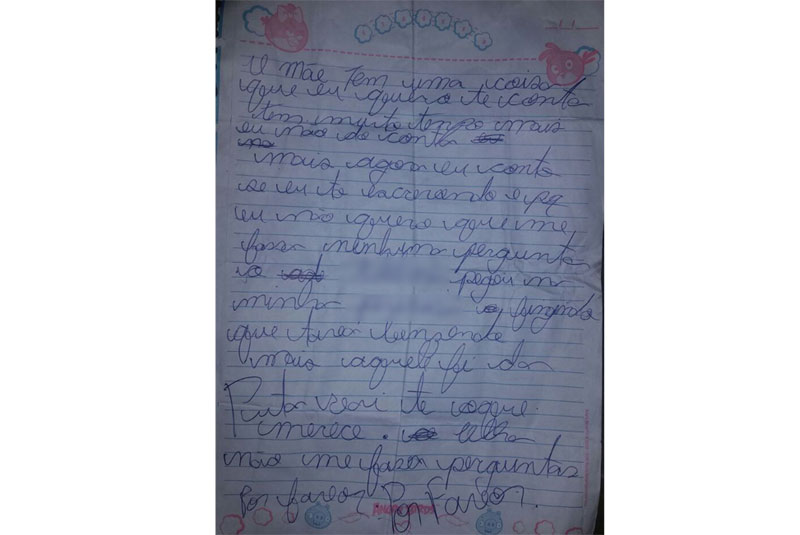 __/__/__
U mãe tem uma coisa
que eu quero te conta
tem muito tempo mais
eu não do conta
mais agora eu conta
se eu to escrevendo e pq
eu não quero que me
fasa nenhuma pergunta
pegou na
minha fingindo
que tava benzendo
mais aquele fi da
Puta vai te oque
merece. Olha
não me fasa perguntas
Por favor Por Favor.
ANGRY BIRDS